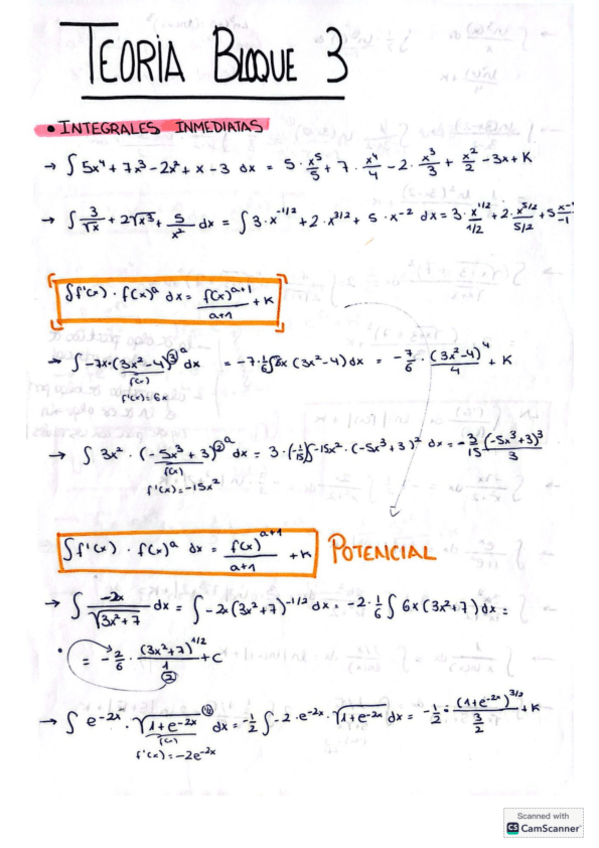 TEORÍA BLOQUE 3
• INTEGRALES INMEDIATAS
→ ∫ 5x⁴ + 7x³ - 2x² + x - 3 dx = 5 · x⁵/5 + 7 · x⁴/4 - 2 · x³/3 + x²/2 - 3x + K
→ ∫ 3/√x + 2√x³ + 5/x² dx = ∫ 3 · x^(-1/2) + 2 · x^(3/2) + 5 · x^(-2) dx = 3 · x^(1/2)/(1/2) + 2 · x^(5/2)/(5/2) + 5 x^(-1)/(-1)
∫ f'(x) · f(x)^a dx = f(x)^(a+1)/(a+1) + K
→ ∫ -7x · (3x² - 4)^③ᵃ dx = -7 · 1/6 ∫ 6x (3x² - 4) dx = -7/6 · (3x² - 4)⁴/4 + K
f(x)
f'(x) = 6x
→ ∫ 3x² · (-5x³ + 3)^②ᵃ dx = 3 · (-1/15) ∫ -15x² · (-5x³ + 3)² dx = -3/15 (-5x³ + 3)³/3
f(x)
f'(x) = -15x²
∫ f'(x) · f(x)^a dx = f(x)^(a+1)/(a+1) + K POTENCIAL
→ ∫ -2x/√(3x² + 7) dx = ∫ -2x (3x² + 7)^(-1/2) dx = -2 · 1/6 ∫ 6x (3x² + 7) dx =
= -2/6 · (3x² + 7)^(1/2)/(1/2) + C
→ ∫ e^(-2x) · √(1 + e^(-2x)) dx = -1/2 ∫ -2 · e^(-2x) · √(1 + e^(-2x)) dx = -1/2 · (1 + e^(-2x))^(3/2)/(3/2) + K
f(x)
f'(x) = -2e^(-2x)
Scanned with
CS CamScanner